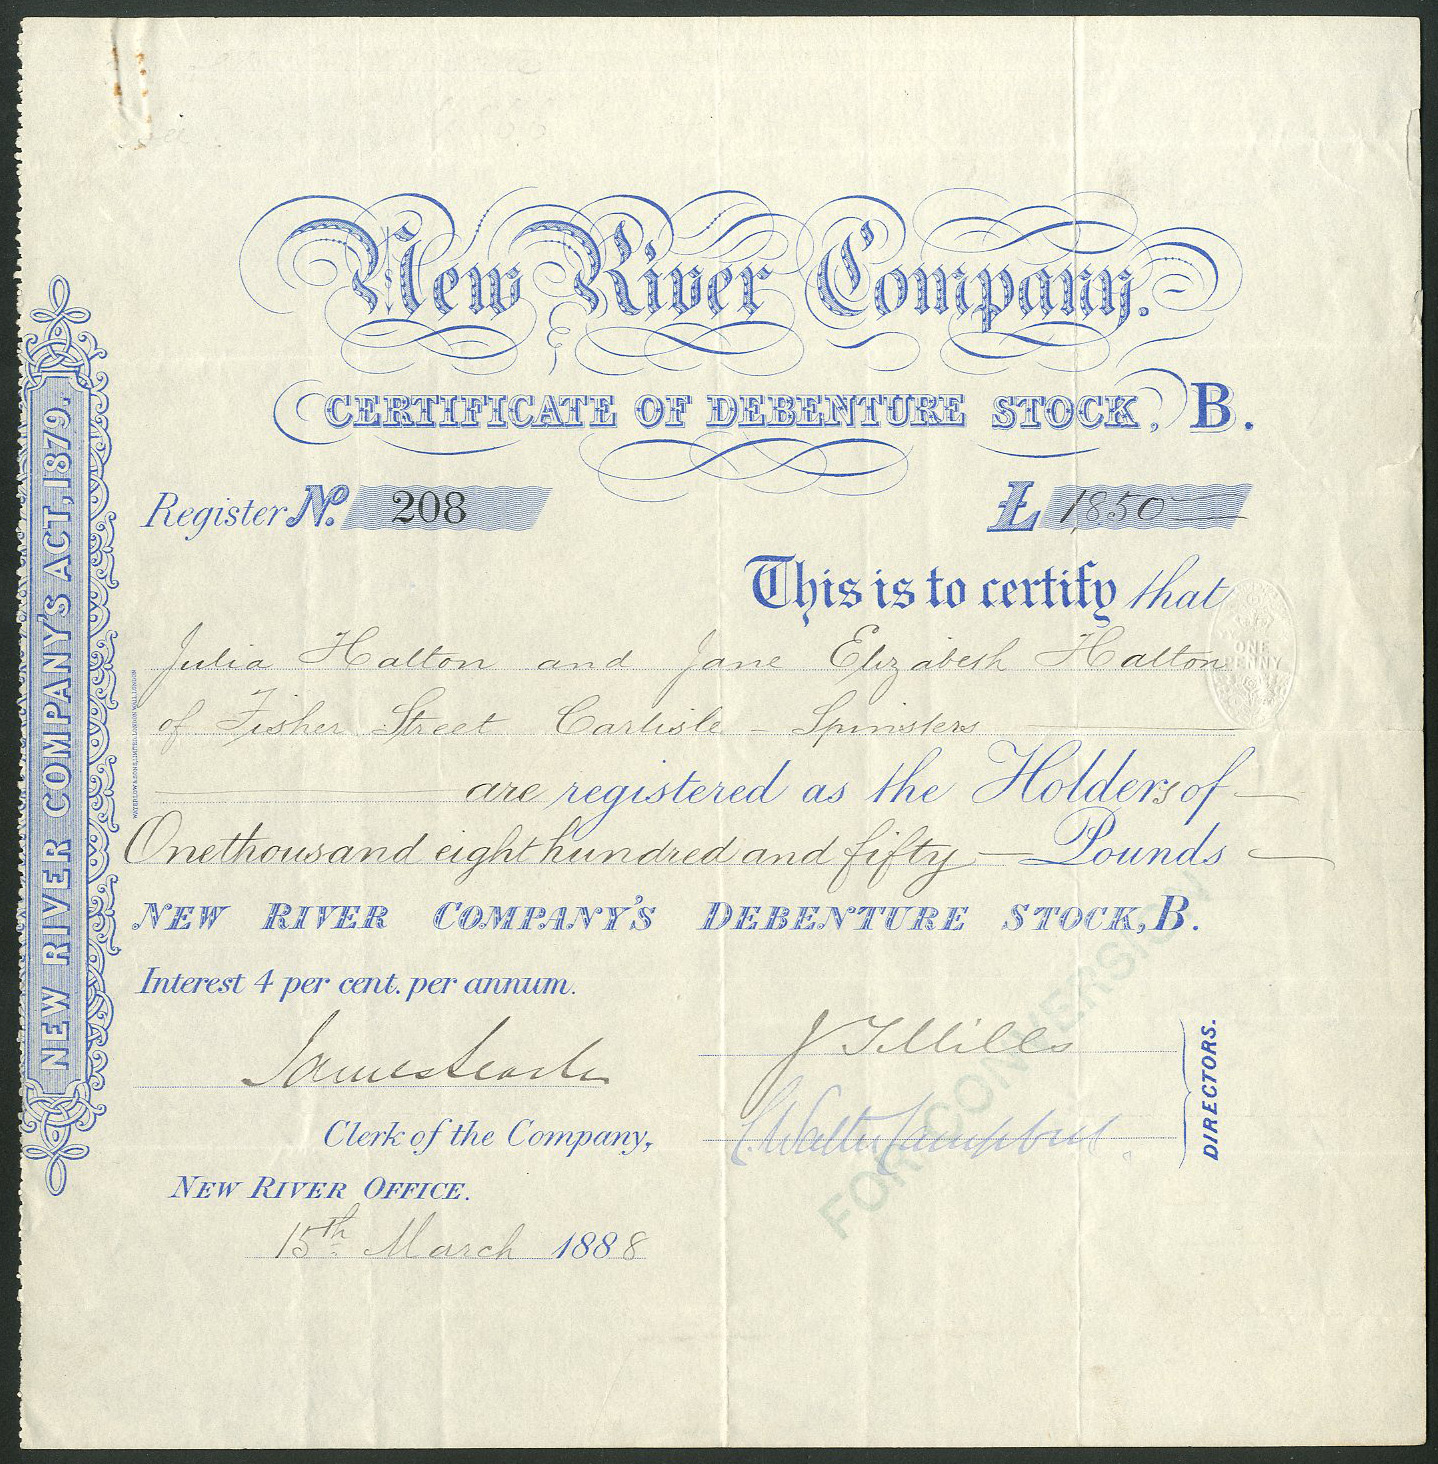 New River Company.
CERTIFICATE OF DEBENTURE STOCK, B.
Register No. 208
£ 1,850
This is to certify that
Julia Halton and Jane Elizabeth Halton
of Fisher Street Carlisle Spinsters
are registered as the Holders of
One thousand eight hundred and fifty Pounds
NEW RIVER COMPANY'S DEBENTURE STOCK, B.
Interest 4 per cent. per annum.
James Searle
Clerk of the Company,
NEW RIVER OFFICE.
15th March 1888
J T Mills
Walter Campbell.
DIRECTORS.
FOR CONVERSION
ONE
PENNY
NEW RIVER COMPANY'S ACT, 1879.
WATERLOW & SONS, LIMITED, LONDON WALL, LONDON